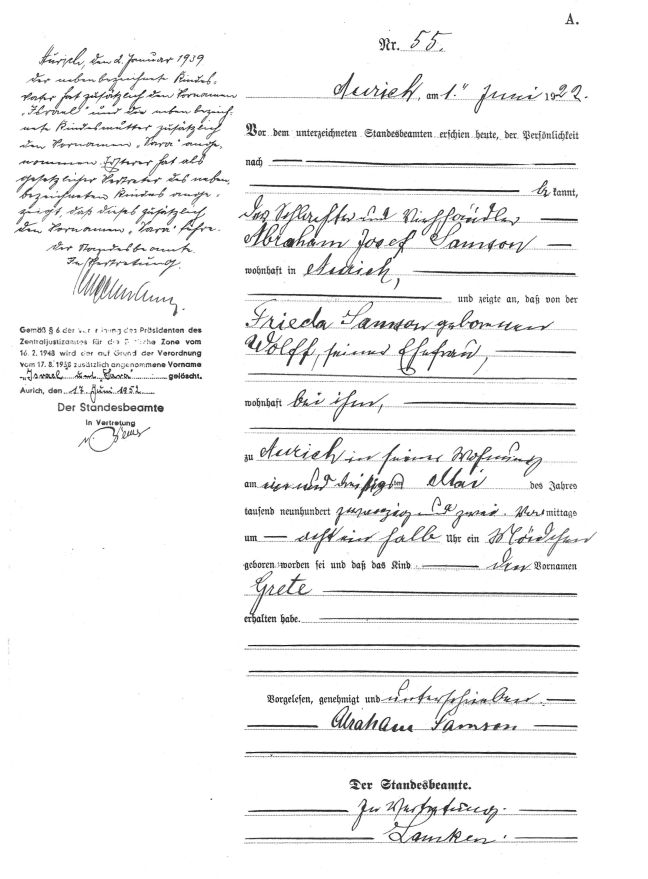 A.
Nr. 55.
Aurich, am 1. Juni 1922.
Vor dem unterzeichneten Standesbeamten erschien heute, der Persönlichkeit
nach
be kannt,
der Schlachter und Viehhändler
Abraham Josef Samson
wohnhaft in Aurich,
und zeigte an, daß von der
Frieda Samson geborenen
Wolff, seiner Ehefrau,
wohnhaft bei ihm,
zu Aurich in seiner Wohnung
am ein und dreißigsten Mai des Jahres
tausend neunhundert zwanzig und zwei Vormittags
um acht ein halb Uhr ein Mädchen
geboren worden sei und daß das Kind den Vornamen
Grete
erhalten habe.
Vorgelesen, genehmigt und unterschrieben
Abraham Samson
Der Standesbeamte.
In Vertretung.
Lamken.
Aurich, den 2. Januar 1939
Der nebenbezeichnete Kindes-
vater hat zusätzlich den Vornamen
„Israel" und die neben bezeich-
nete Kindesmutter zusätzlich
den Vornamen „Sara" ange-
nommen. Ersterer hat als
gesetzlicher Vertreter des neben
bezeichneten Kindes ange-
zeigt, daß dieses zusätzlich
den Vornamen „Sara" führe.
Der Standesbeamte
In Vertretung.
Gemäß § 6 der Verordnung des Präsidenten des
Zentraljustizamtes für die Britische Zone vom
16. 2. 1948 wird der auf Grund der Verordnung
vom 17. 8. 1938 zusätzlich angenommene Vorname
„Israel und „Sara" gelöscht.
Aurich, den 17. Juni 1952
Der Standesbeamte
In Vertretung